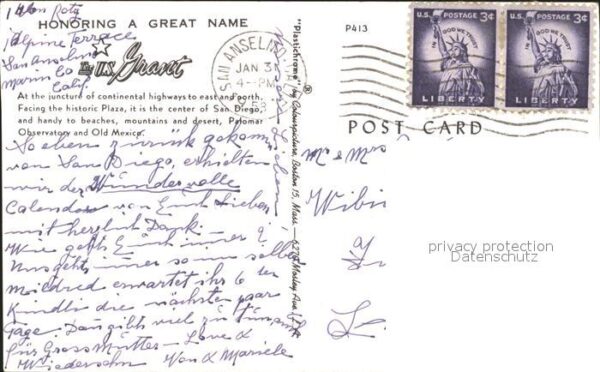 Von Rotz
1 Alpine Terrace
San Anselmo
Marin Co
Calif.
HONORING A GREAT NAME
The U.S. Grant
At the juncture of continental highways to east and north.
Facing the historic Plaza, it is the center of San Diego,
and handy to beaches, mountains and desert, Palomar
Observatory and Old Mexico.
Soeben zurück gekomm
von San Diego, erhielten
wir der Wundervolle
Calender von Euch Lieben
mit herzlich Dank.
Wie gehts Euch immer?
Uns gehts immer so
Mildred erwartet ihr 6 ter
Kindli die nächsten paar
Tage. Dan gibts viel zu tun
für Grossmütter - Love &
Wiedersehn Von & Mariele
"Plastichrome" ® by Colourpicture, Boston 15, Mass.
P413
SAN ANSELMO
JAN 31
4-PM
POST CARD
U.S. POSTAGE 3¢
IN GOD WE TRUST
LIBERTY
U.S. POSTAGE 3¢
IN GOD WE TRUST
LIBERTY
privacy protection
Datenschutz